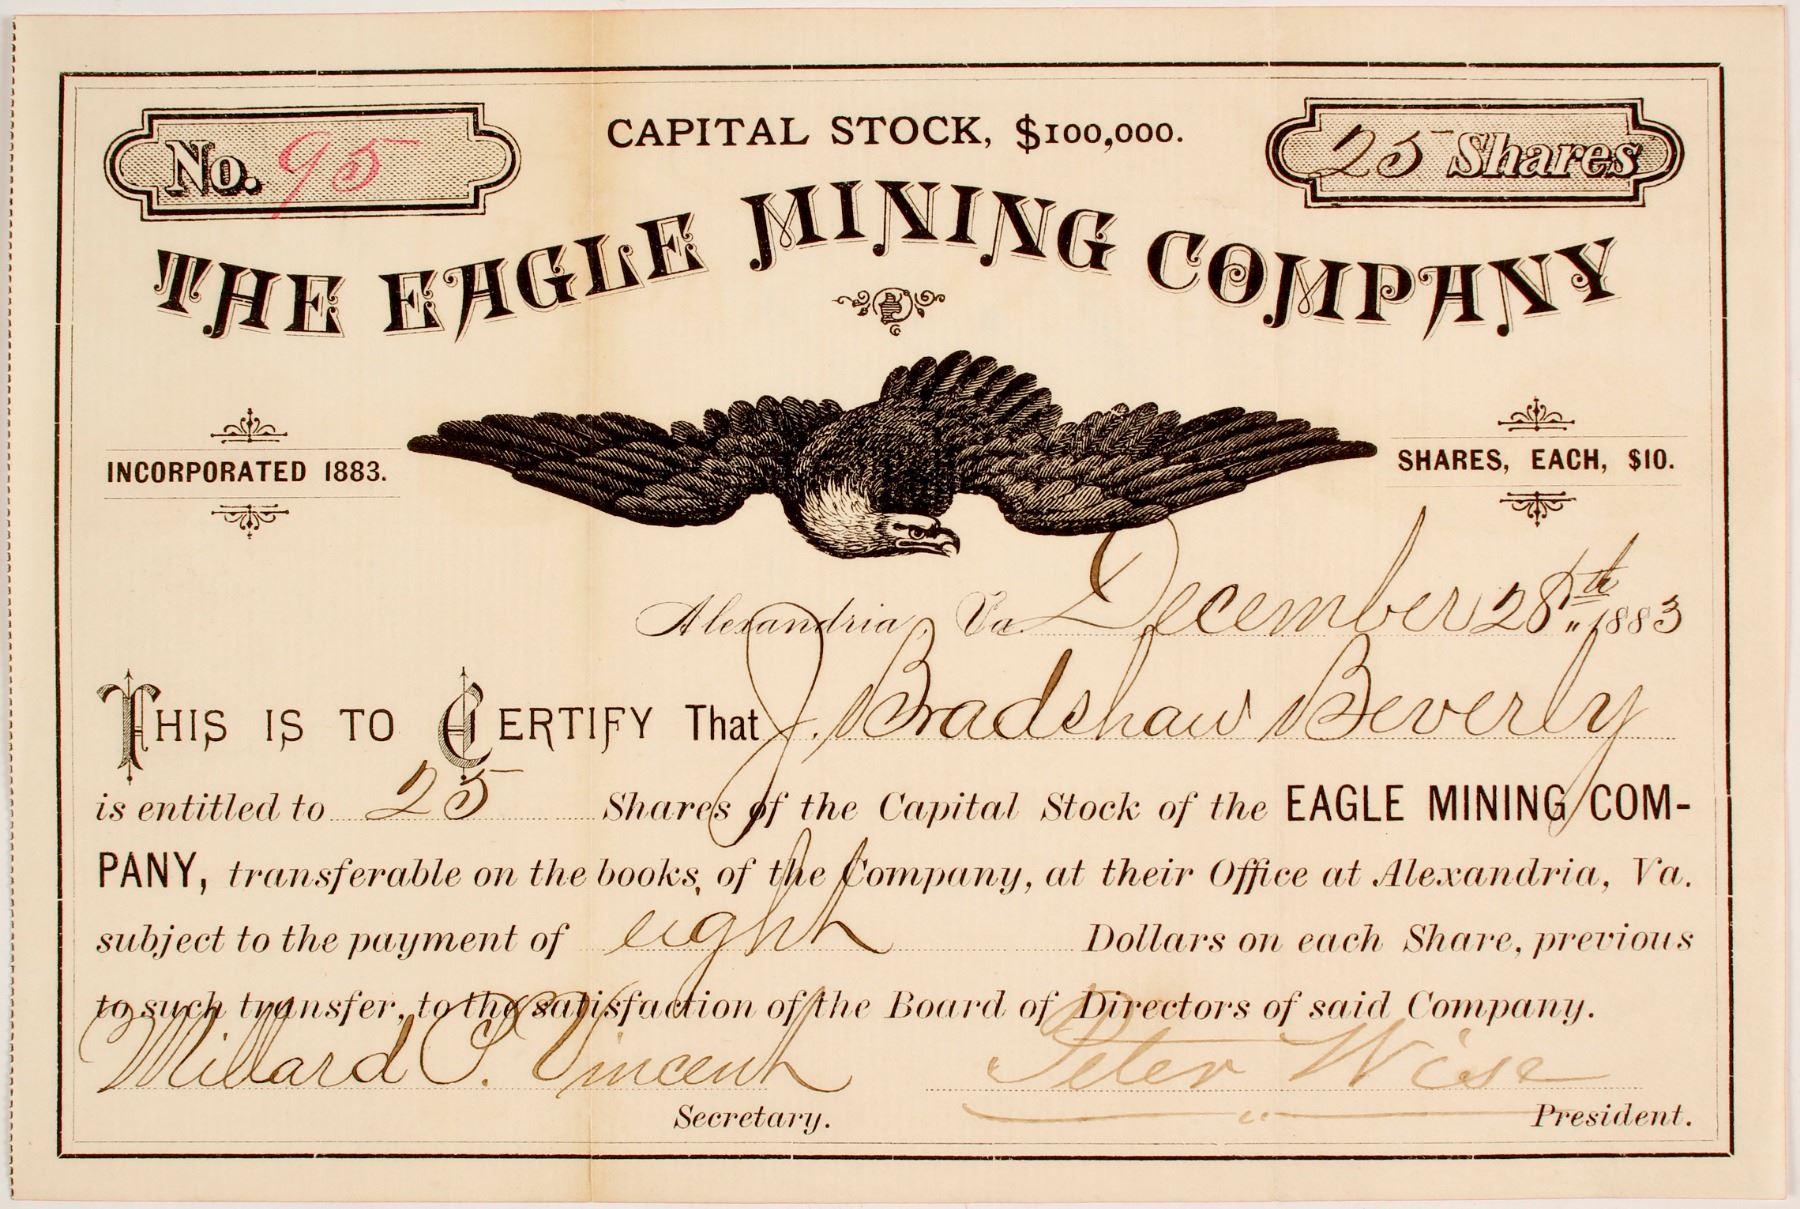 No. 95
CAPITAL STOCK, $100,000.
25 Shares
THE EAGLE MINING COMPANY
INCORPORATED 1883.
SHARES, EACH, $10.
Alexandria, Va. December 28th 1883
THIS IS TO CERTIFY That J. Bradshaw Beverly
is entitled to 25 Shares of the Capital Stock of the EAGLE MINING COM-
PANY, transferable on the books, of the Company, at their Office at Alexandria, Va.
subject to the payment of eight Dollars on each Share, previous
to such transfer, to the satisfaction of the Board of Directors of said Company.
Millard P. Vincent
Peter Wise
Secretary.
President.